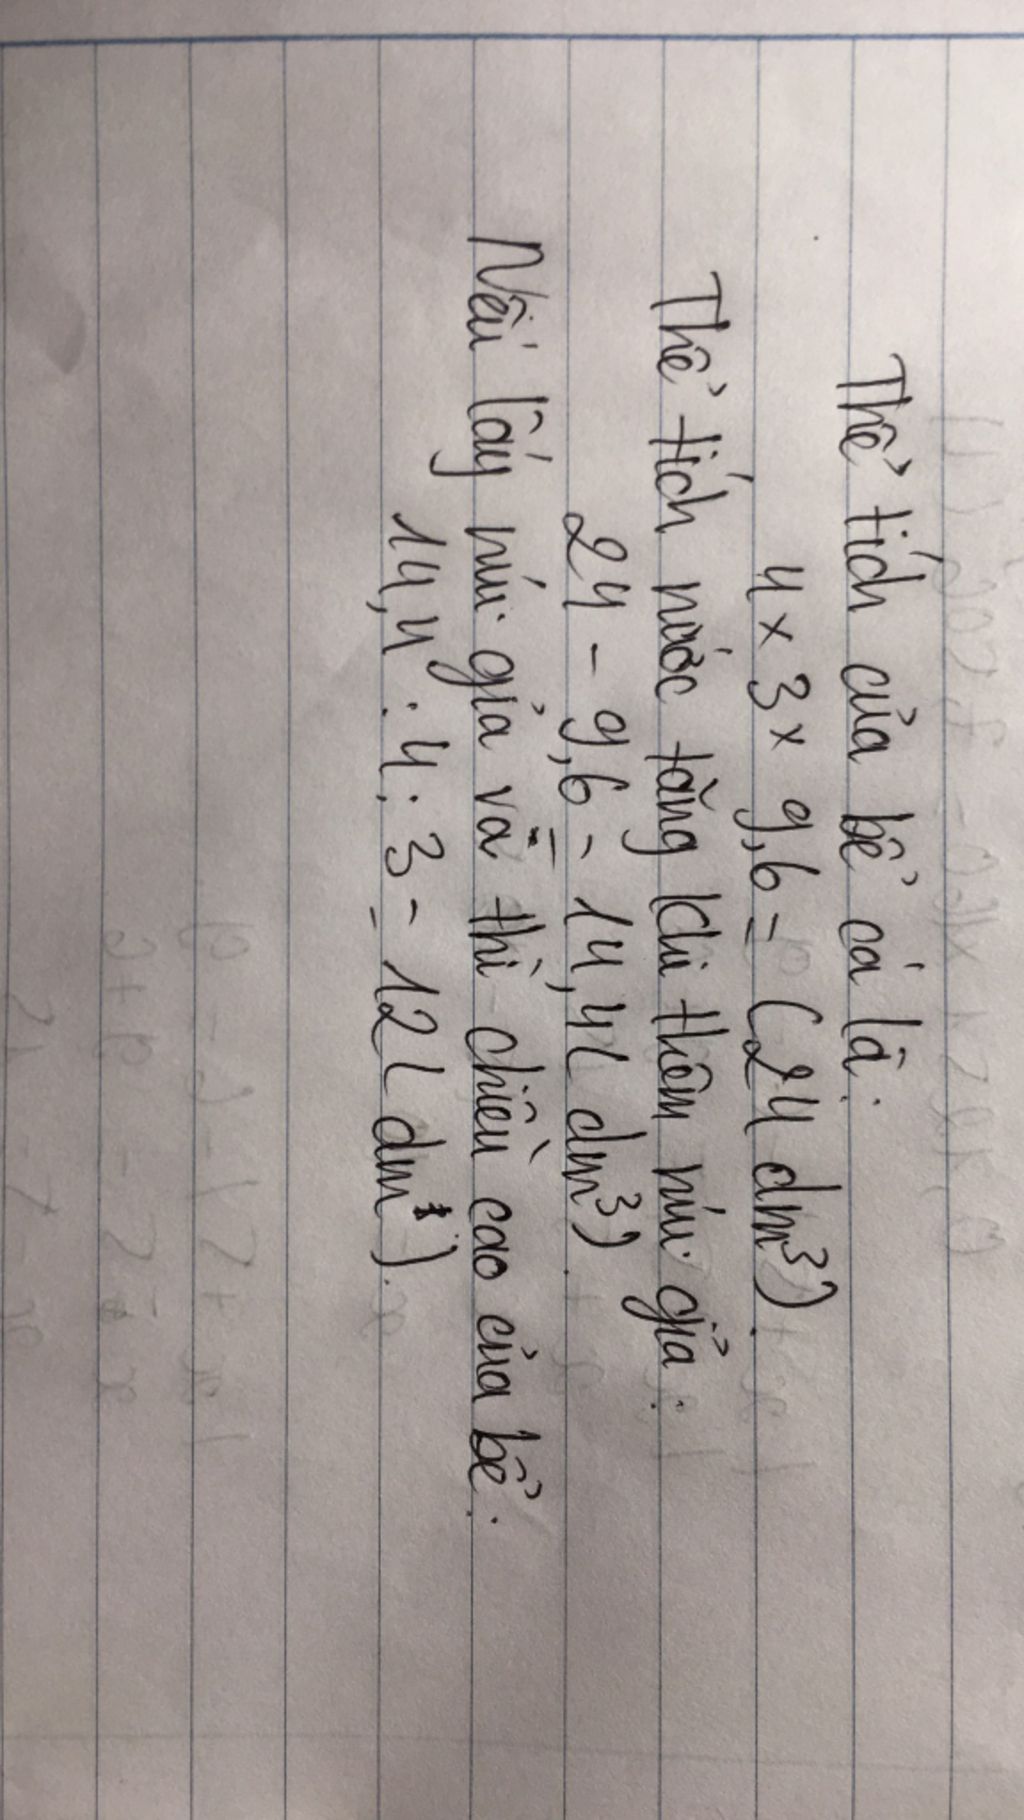 Thể tích của bể cá là:
4 x 3 x 9,6 = (24 dm³).
Thể tích nước tăng khi thêm núi giả:
24 - 9,6 = 14,4( dm³).
Nếu lấy núi giả và thì chiều cao của bể:
14,4 : 4 : 3 = 12( dm ).